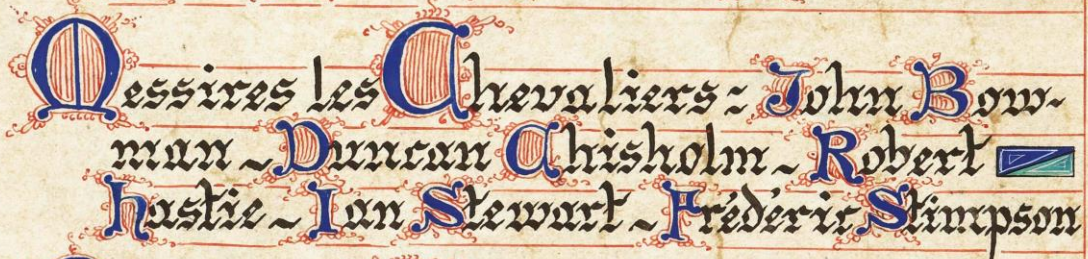 Messires les Chevaliers : John Bow-
man ~ Duncan Chisholm ~ Robert
hastie ~ Ian Stewart ~ Frédéric Stimpson